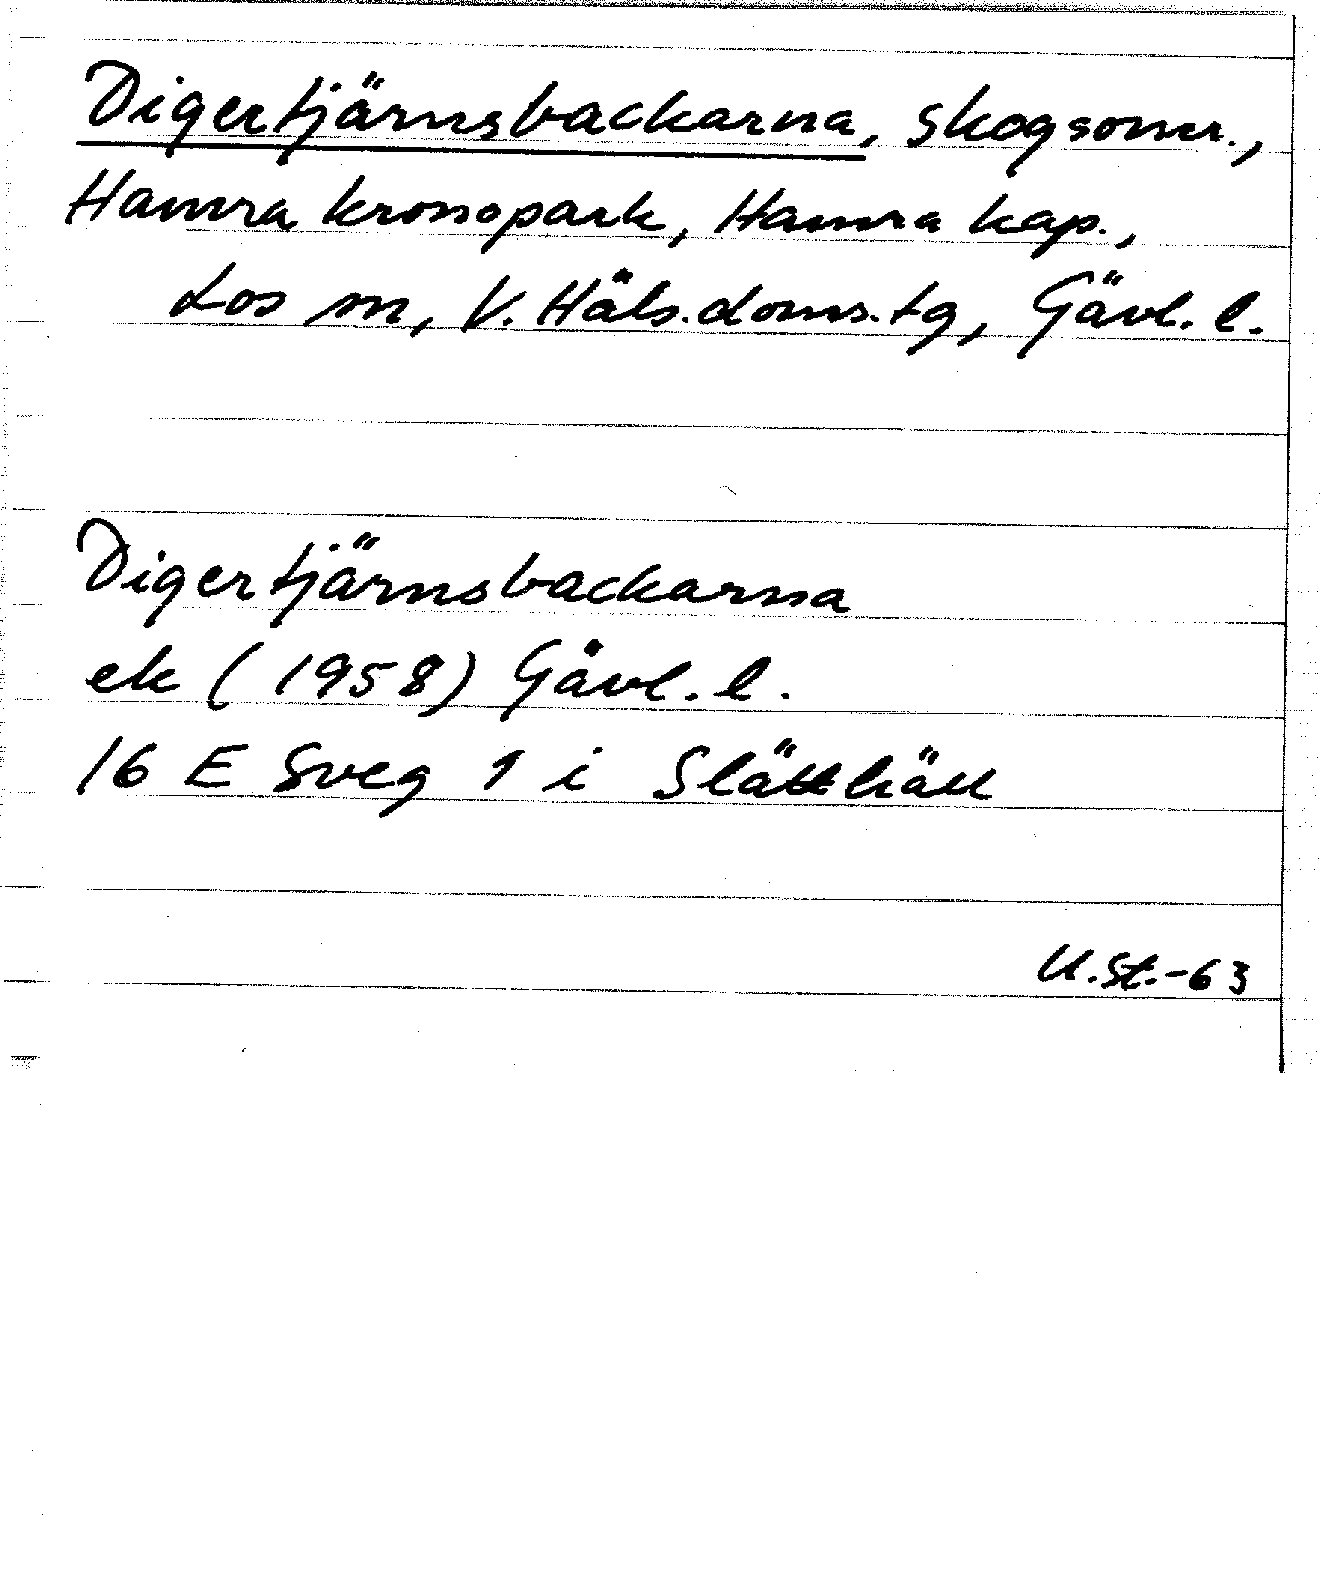 Digertjärnsbackarna, skogsomr.,
Hamra kronopark, Hamra kap.,
Los sn, V. Häls. doms. tg, Gävl. l.
Digertjärnsbackarna
ek (1958) Gävl. l.
16 E Sveg 1 i
U.St.-63